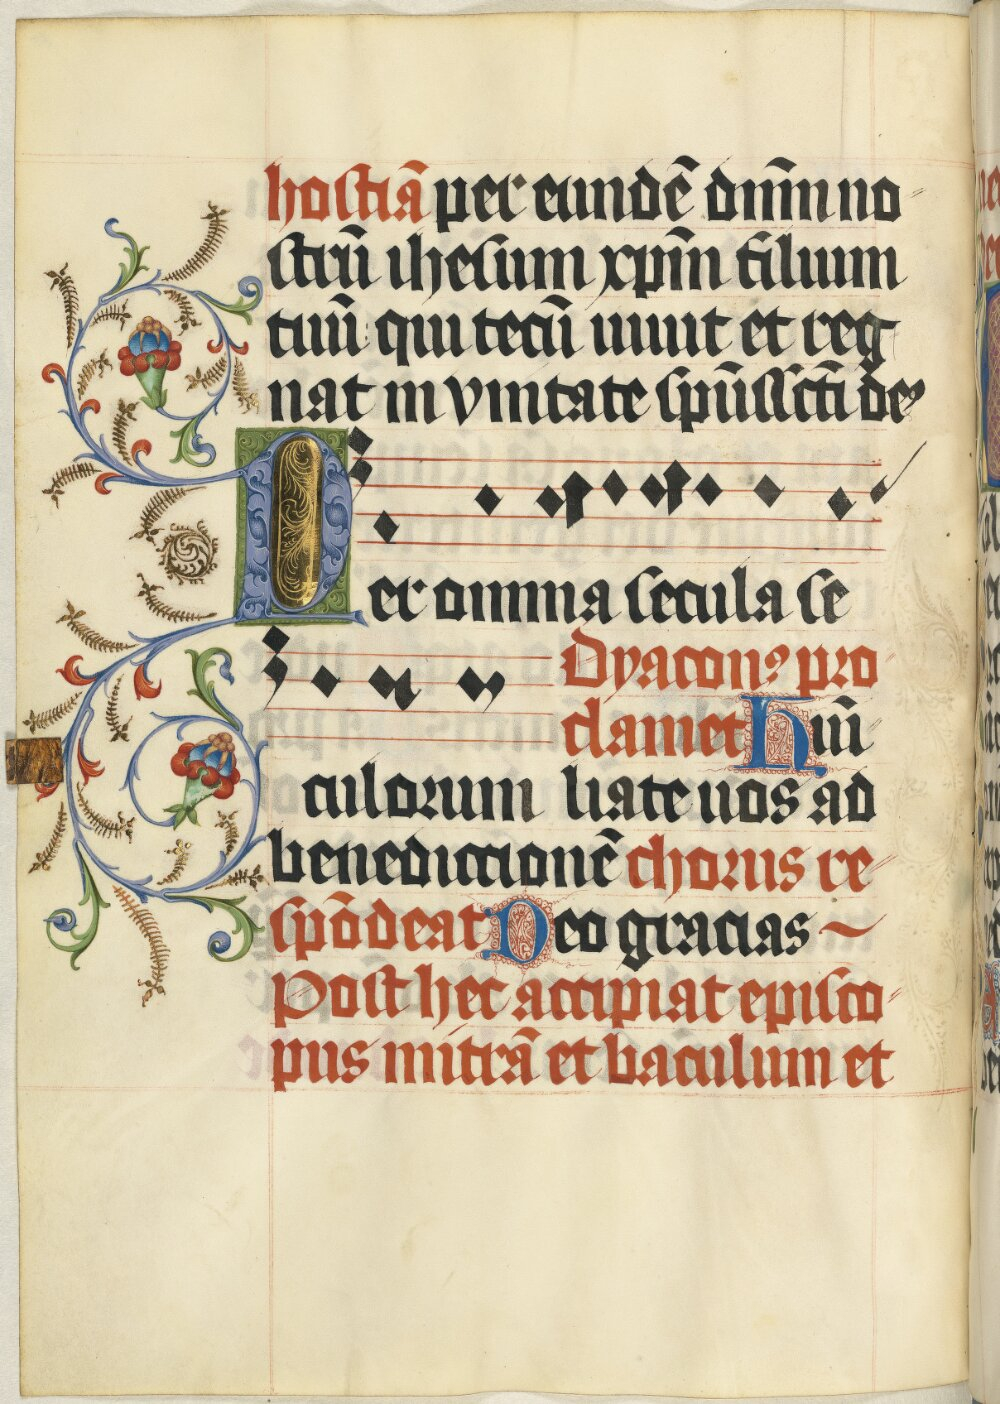 hostiā per eundē dn̄m no
strū ihesum xp̄m filium
tuū qui tecū uiuit et reg
nat in vnitate sp̄ūssc̄ti de9
Per omnia secula se
Dyacon9 pro
clamet Hūi
culorum liate uos ad
benedictionē chorus re
spōdeat Deo gracias
Post hec accipiat episco
pus mitrā et baculum et